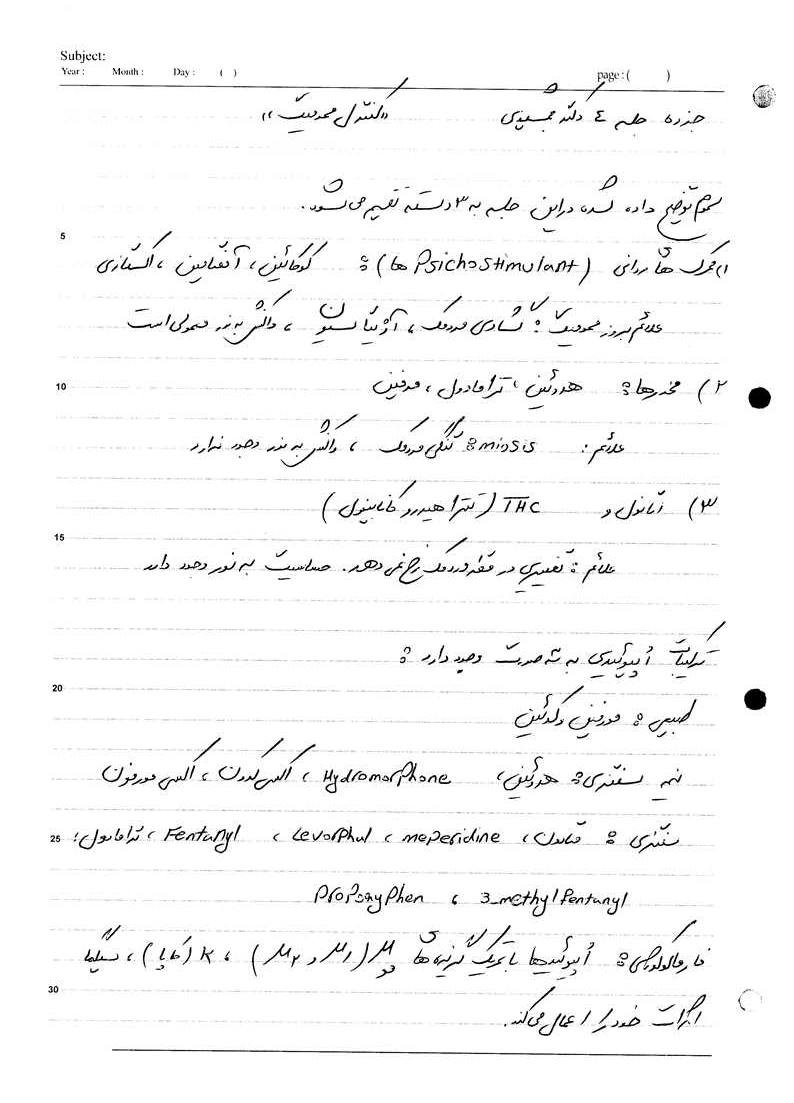 Subject:
Year : Month : Day : ( ) page : ( )
جزوه جلسه ٤ دکتر جمشیدی «کنترل مسمومیت»
سموم توضیح داده شده در این جلسه به ۳ دسته تقسیم می‌شود.
5
۱) محرک های روانی (Psichostimulant ها): کوکائین، آمفتامین، اکستازی
علائم بروز مسمومیت: گشادی مردمک، آژیتاسیون، واکنش به نور معمولی است
10 ۲) مخدرها: هروئین، ترامادول، مرفین
علائم: miosis: تنگی مردمک، واکنش به نور وجود ندارد
۳) اتانول و THC (تترا هیدرو کانابینول)
15
علائم: تغییری در قطر مردمک رخ نمی دهد. حساسیت به نور وجود دارد
ترکیبات اُپیوئیدی به سه صورت وجود دارد:
20
طبیعی: مورفین و کدوئین
نیمه سنتزی: هروئین، Hydromorphone، اکسی کدون، اکسی مورفون
25 سنتزی: متادون، meperidine، Levorphul، Fentanyl، ترامادول؛
Propoxyphen، 3_methylfentanyl
فارماکولوژی: اُپیوئیدها با تحریک گیرنده های مو μ (μ۱ و μ۲)، K (کاپا)، سیگما
30
اثرات خود را اعمال می‌کند.